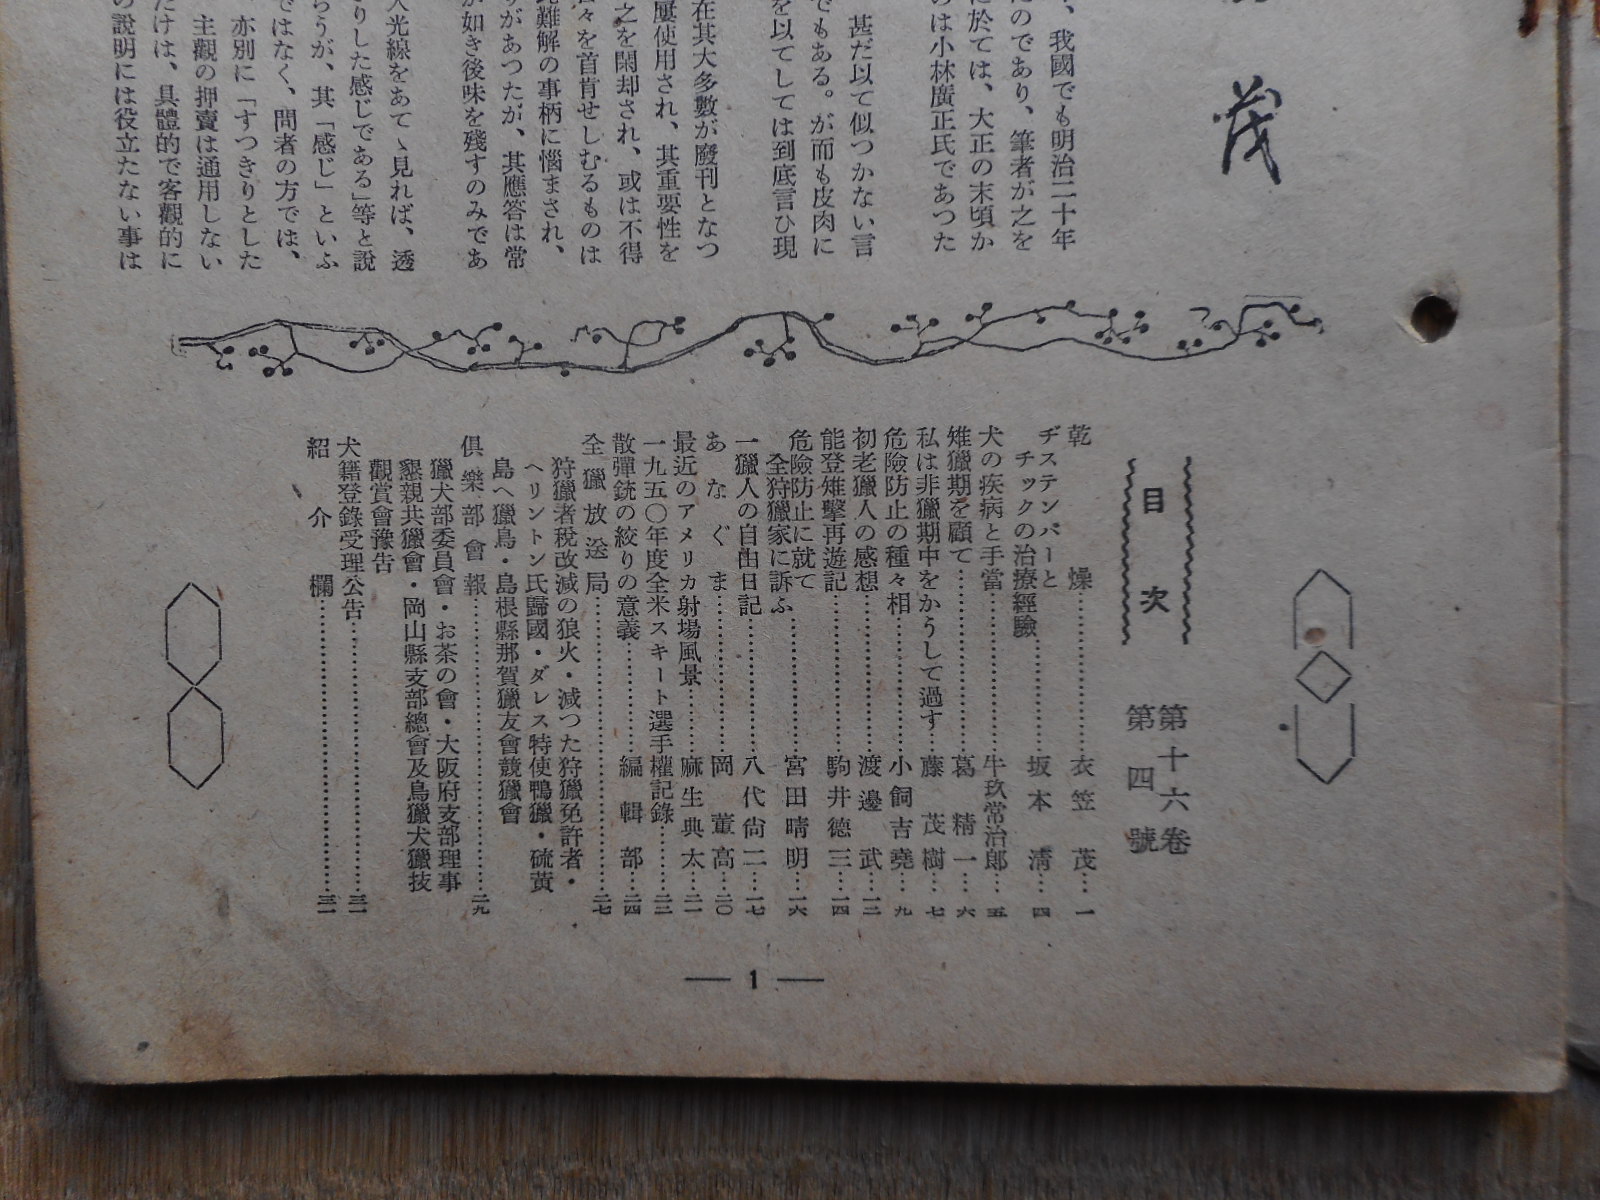 茂
、我國でも明治二十年
のであり、筆者が之を
に於ては、大正の末頃か
のは小林廣正氏であつた
甚だ以て似つかない言
でもある。が而も皮肉に
を以てしては到底言ひ現
在其大多數が廢刊となつ
屢使用され、其重要性を
之を閑却され、或は不得
々を首肯せしむるものは
難解の事柄に惱まされ、
があつたが、其應答は常
が如き後味を殘すのみであ
光線をあてゝ見れば、透
きりした感じである」等と說
らうが、其「感じ」といふ
ではなく、問者の方では、
亦別に「すつきりとした
主觀の押賣は通用しない
だけは、具體的で客觀的に
の說明には役立たない事は
目次
第十六卷
第四號
乾燥……衣笠茂…一
ヂステンパーと
チックの治療經驗……坂本淸…四
犬の疾病と手當……牛玖常治郎…五
雉獵期を顧て……葛精一…六
私は非獵期中をかうして過す……藤茂樹…七
危險防止の種々相……小飼吉堯…九
初老獵人の感想……渡邊武…一三
能登雉擊再遊記……駒井德三…一四
危險防止に就て
全狩獵家に訴ふ……宮田晴明…一六
一獵人の自由日記……八代尙二…一七
あなぐま……岡董高…二〇
最近のアメリカ射場風景……麻生典太…二一
一九五〇年度全米スキート選手權記錄……二三
散彈銃の絞りの意義……編輯部…二四
全獵放送局……二七
狩獵者稅改減の狼火・減つた狩獵免許者・
ヘリントン氏歸國・ダレス特使鴨獵・硫黃
島へ獵鳥・島根縣那賀獵友會競獵會
俱樂部會報……二九
獵犬部委員會・お茶の會・大阪府支部理事
懇親共獵會・岡山縣支部總會及鳥獵犬獵技
觀賞會豫告
犬籍登錄受理公告……三一
紹介欄……三一
— 1 —